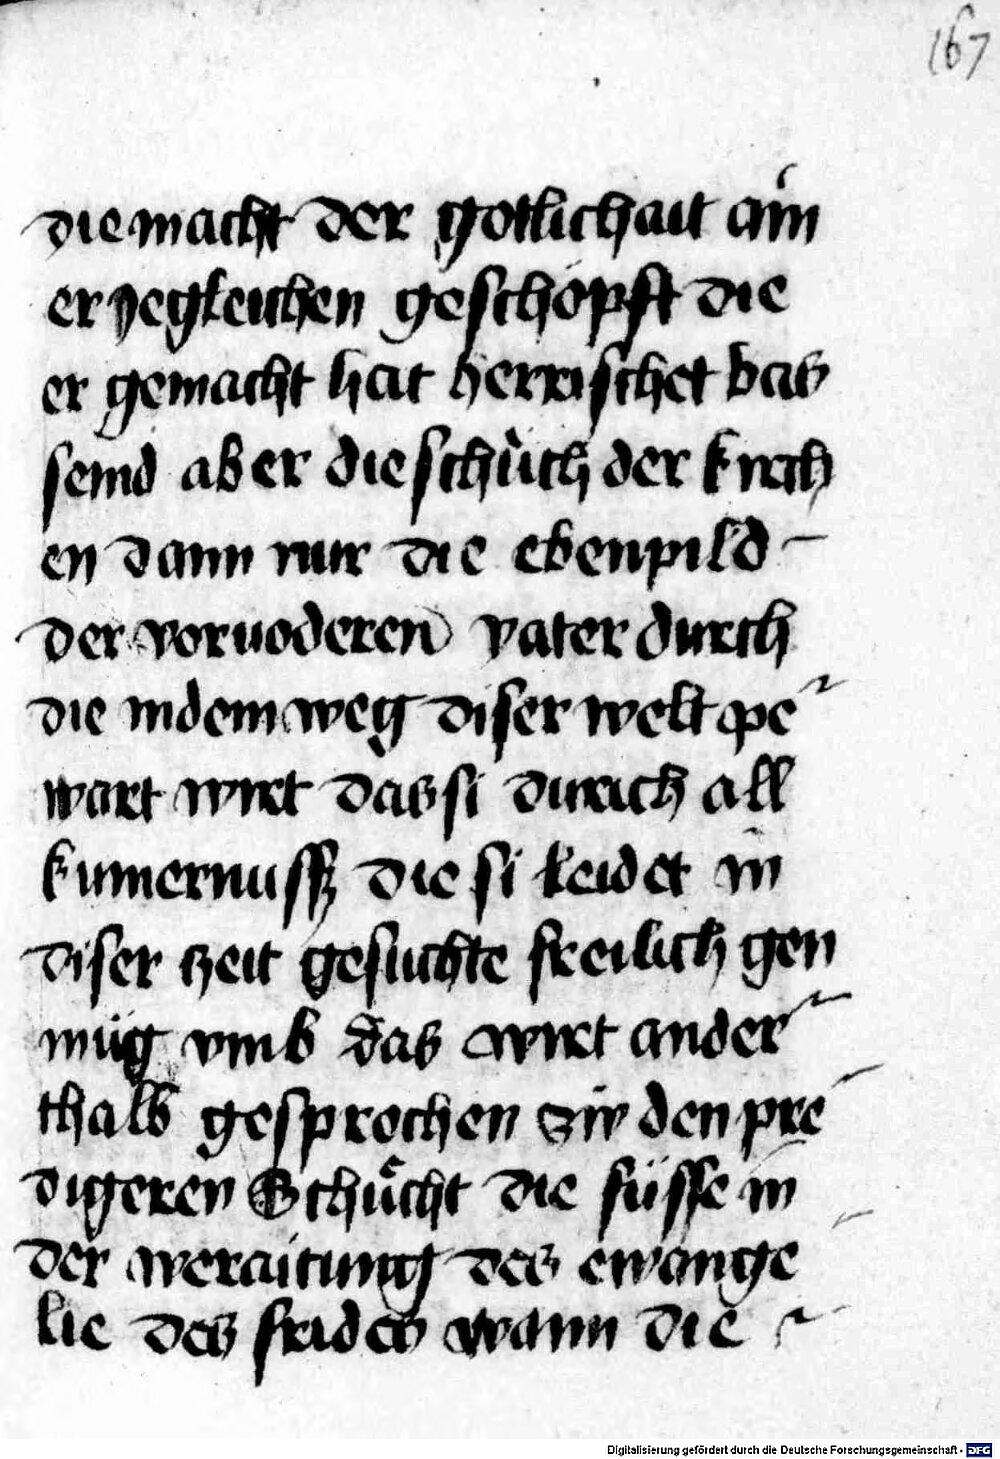 167
die macht der gotlichait ain
er yegleichen geschöpft die
er gemacht hat herrischet bas
seind aber die schùch der kirch
en dann nur die ebenpild
der voruoderen vater durch
die indem weg diser welt pe
wart wirt das si durich all
kumernussz die si leidet in
diser zeit gesuchte freilich gen
müg vmb das wirt ander
thalb gesprochen zw den pre
digeren Schůcht die füsse in
der weraitung des ewange
lie des frides wann die
Digitalisierung gefördert durch die Deutsche Forschungsgemeinschaft - DFG